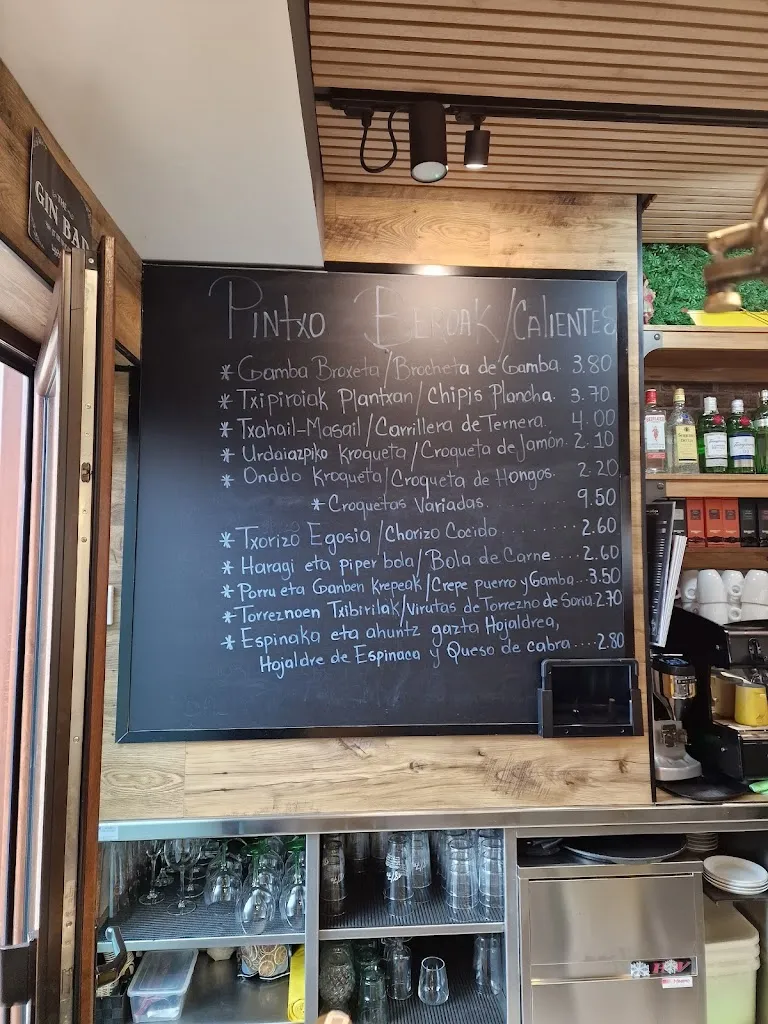 GIN BAR
PINTXO BEROAK/CALIENTES
* Gamba Broxeta/Brocheta de Gamba. 3.80
* Txipiroiak Plantxan/Chipis Plancha. 3.70
* Txahail-Masail/Carrillera de Ternera. 4.00
* Urdaiazpiko Kroqueta/Croqueta de Jamón. 2.10
* Onddo Kroqueta/Croqueta de Hongos. 2.20
* Croquetas Variadas. 9.50
* Txorizo Egosia/Chorizo Cocido.......... 2.60
* Haragi eta piper bola/Bola de Carne....2.60
* Porru eta Ganben Krepeak/Crepe puerro y Gamba...3.50
* Torreznoen Txibirilak/Virutas de Torrezno de Soria 2.70
* Espinaka eta ahuntz gazta Hojaldrea,
Hojaldre de Espinaca y Queso de cabra....2.80